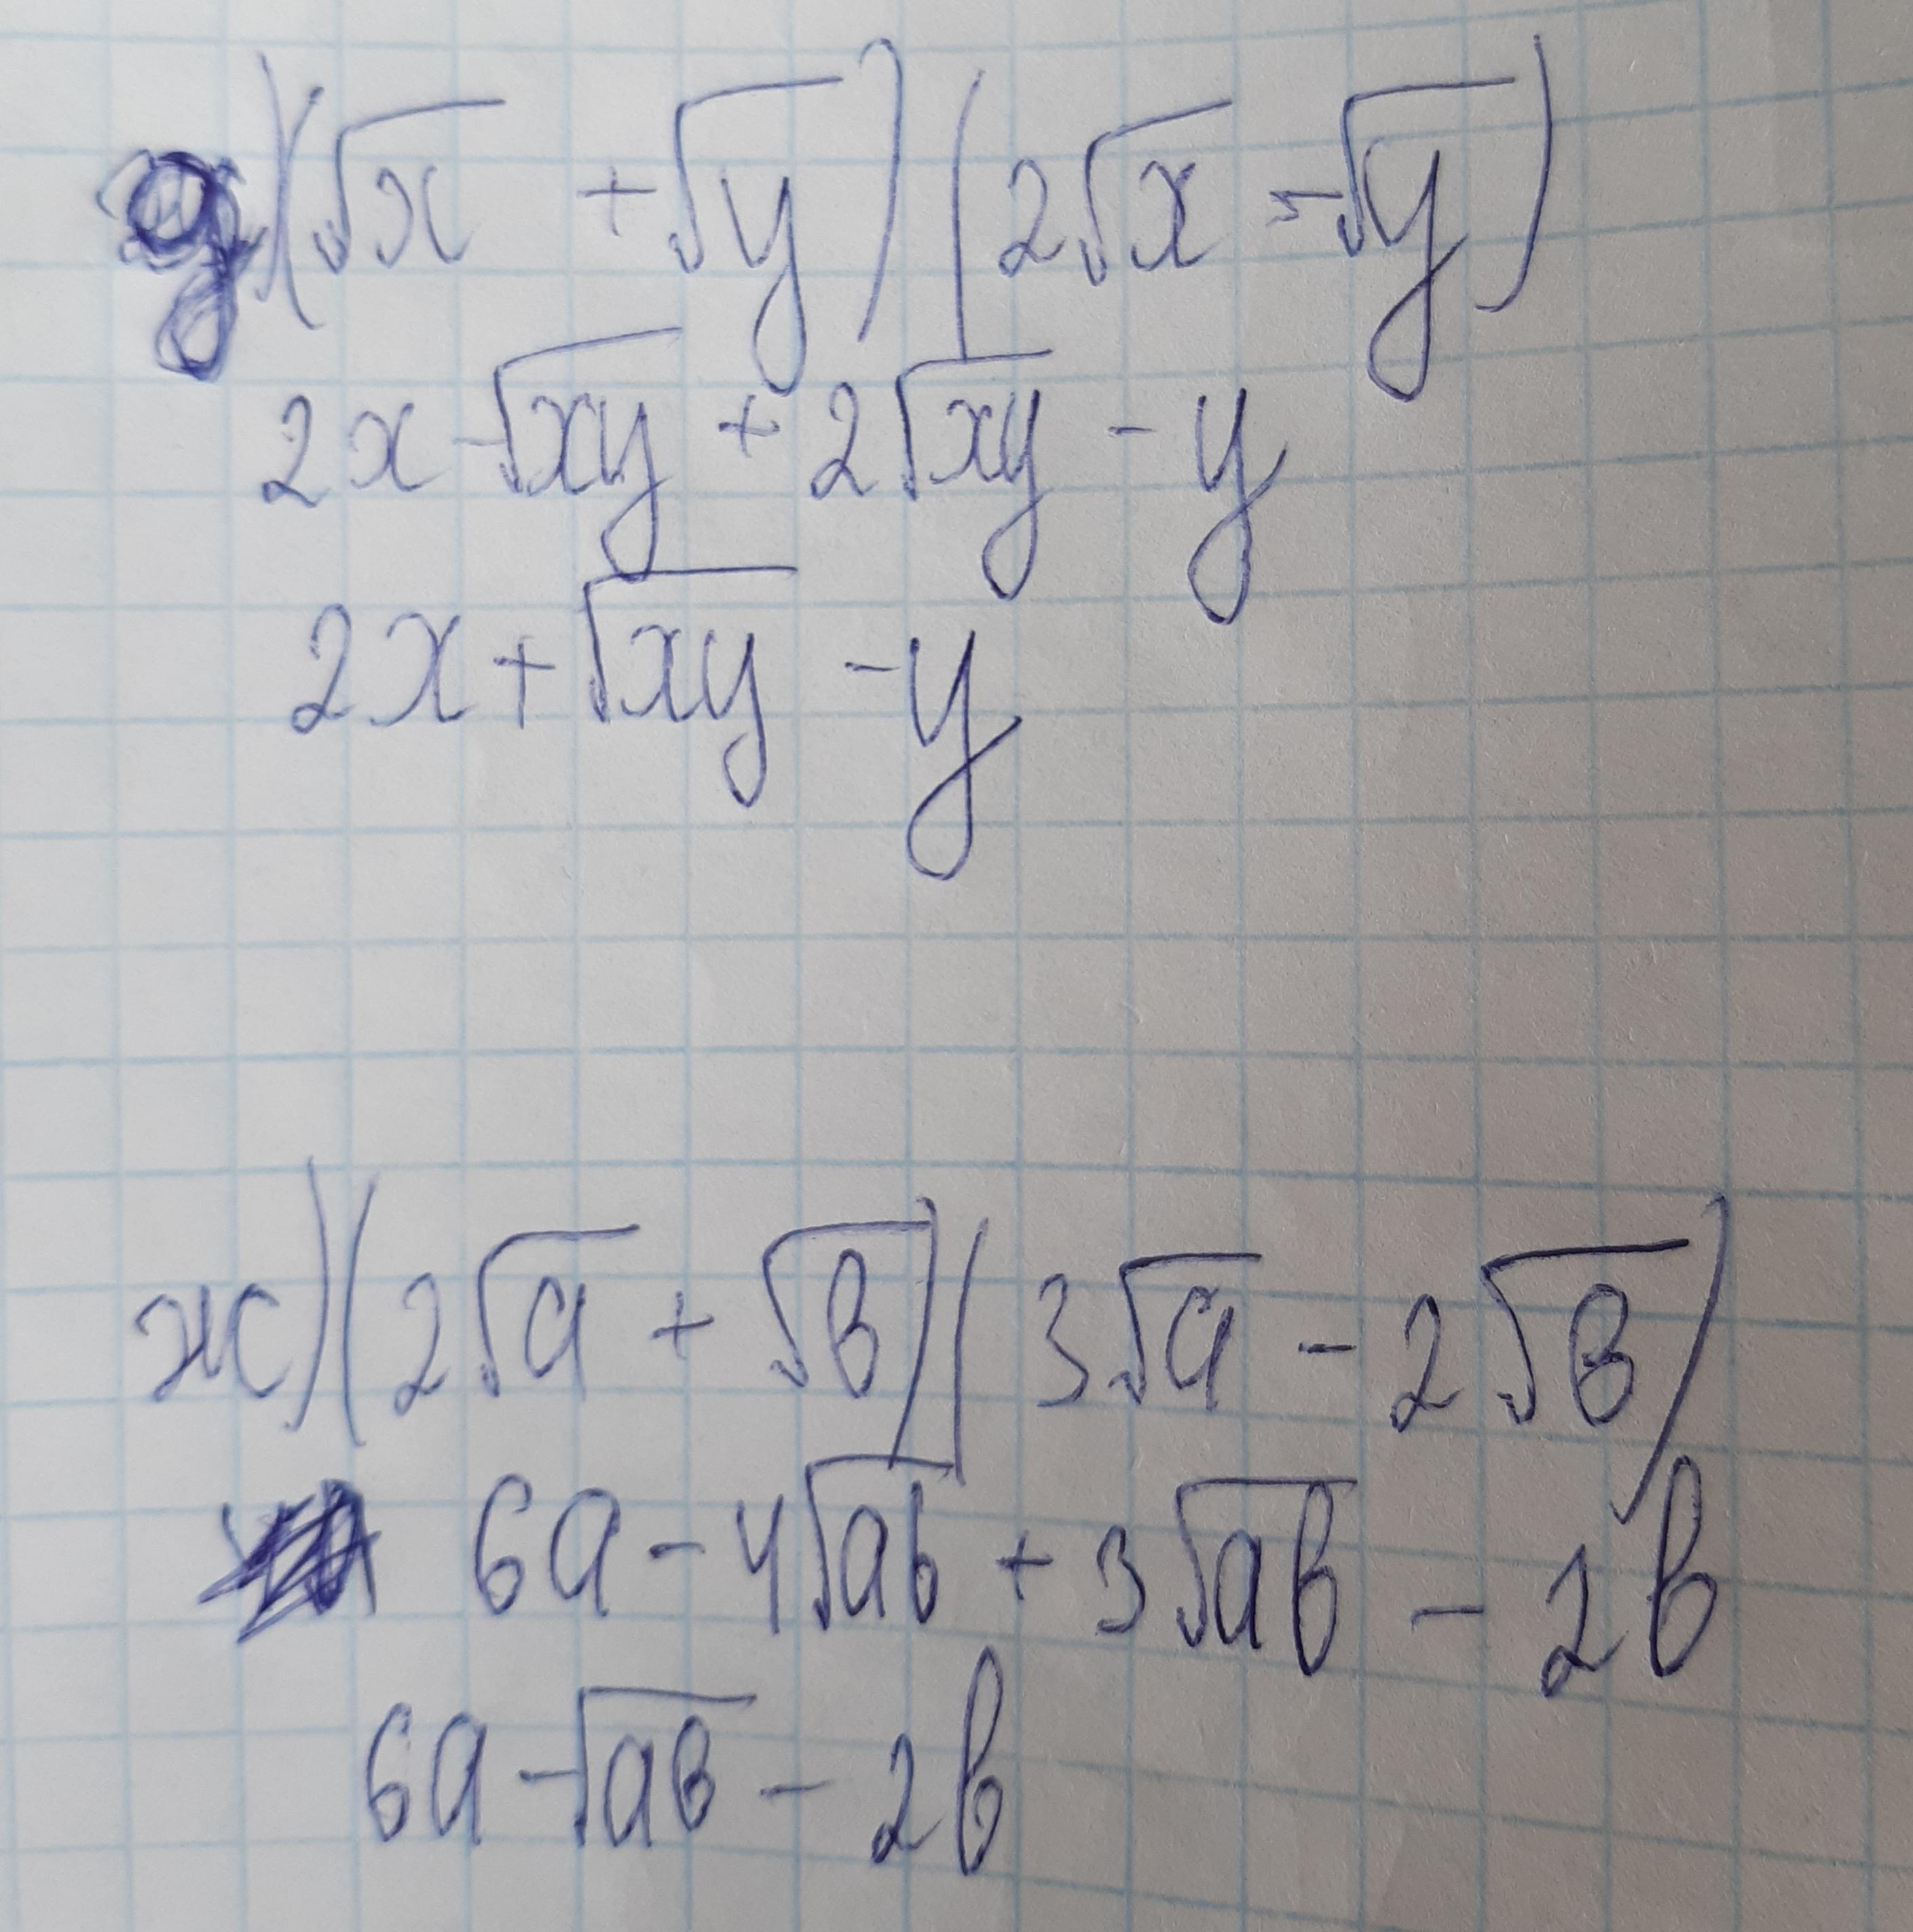 д) (√x + √y) (2√x - √y)
2x - √xy + 2√xy - y
2x + √xy - y
ж) (2√a + √в) (3√a - 2√в)
6a - 4√ab + 3√ab - 2b
6a - √aв - 2b